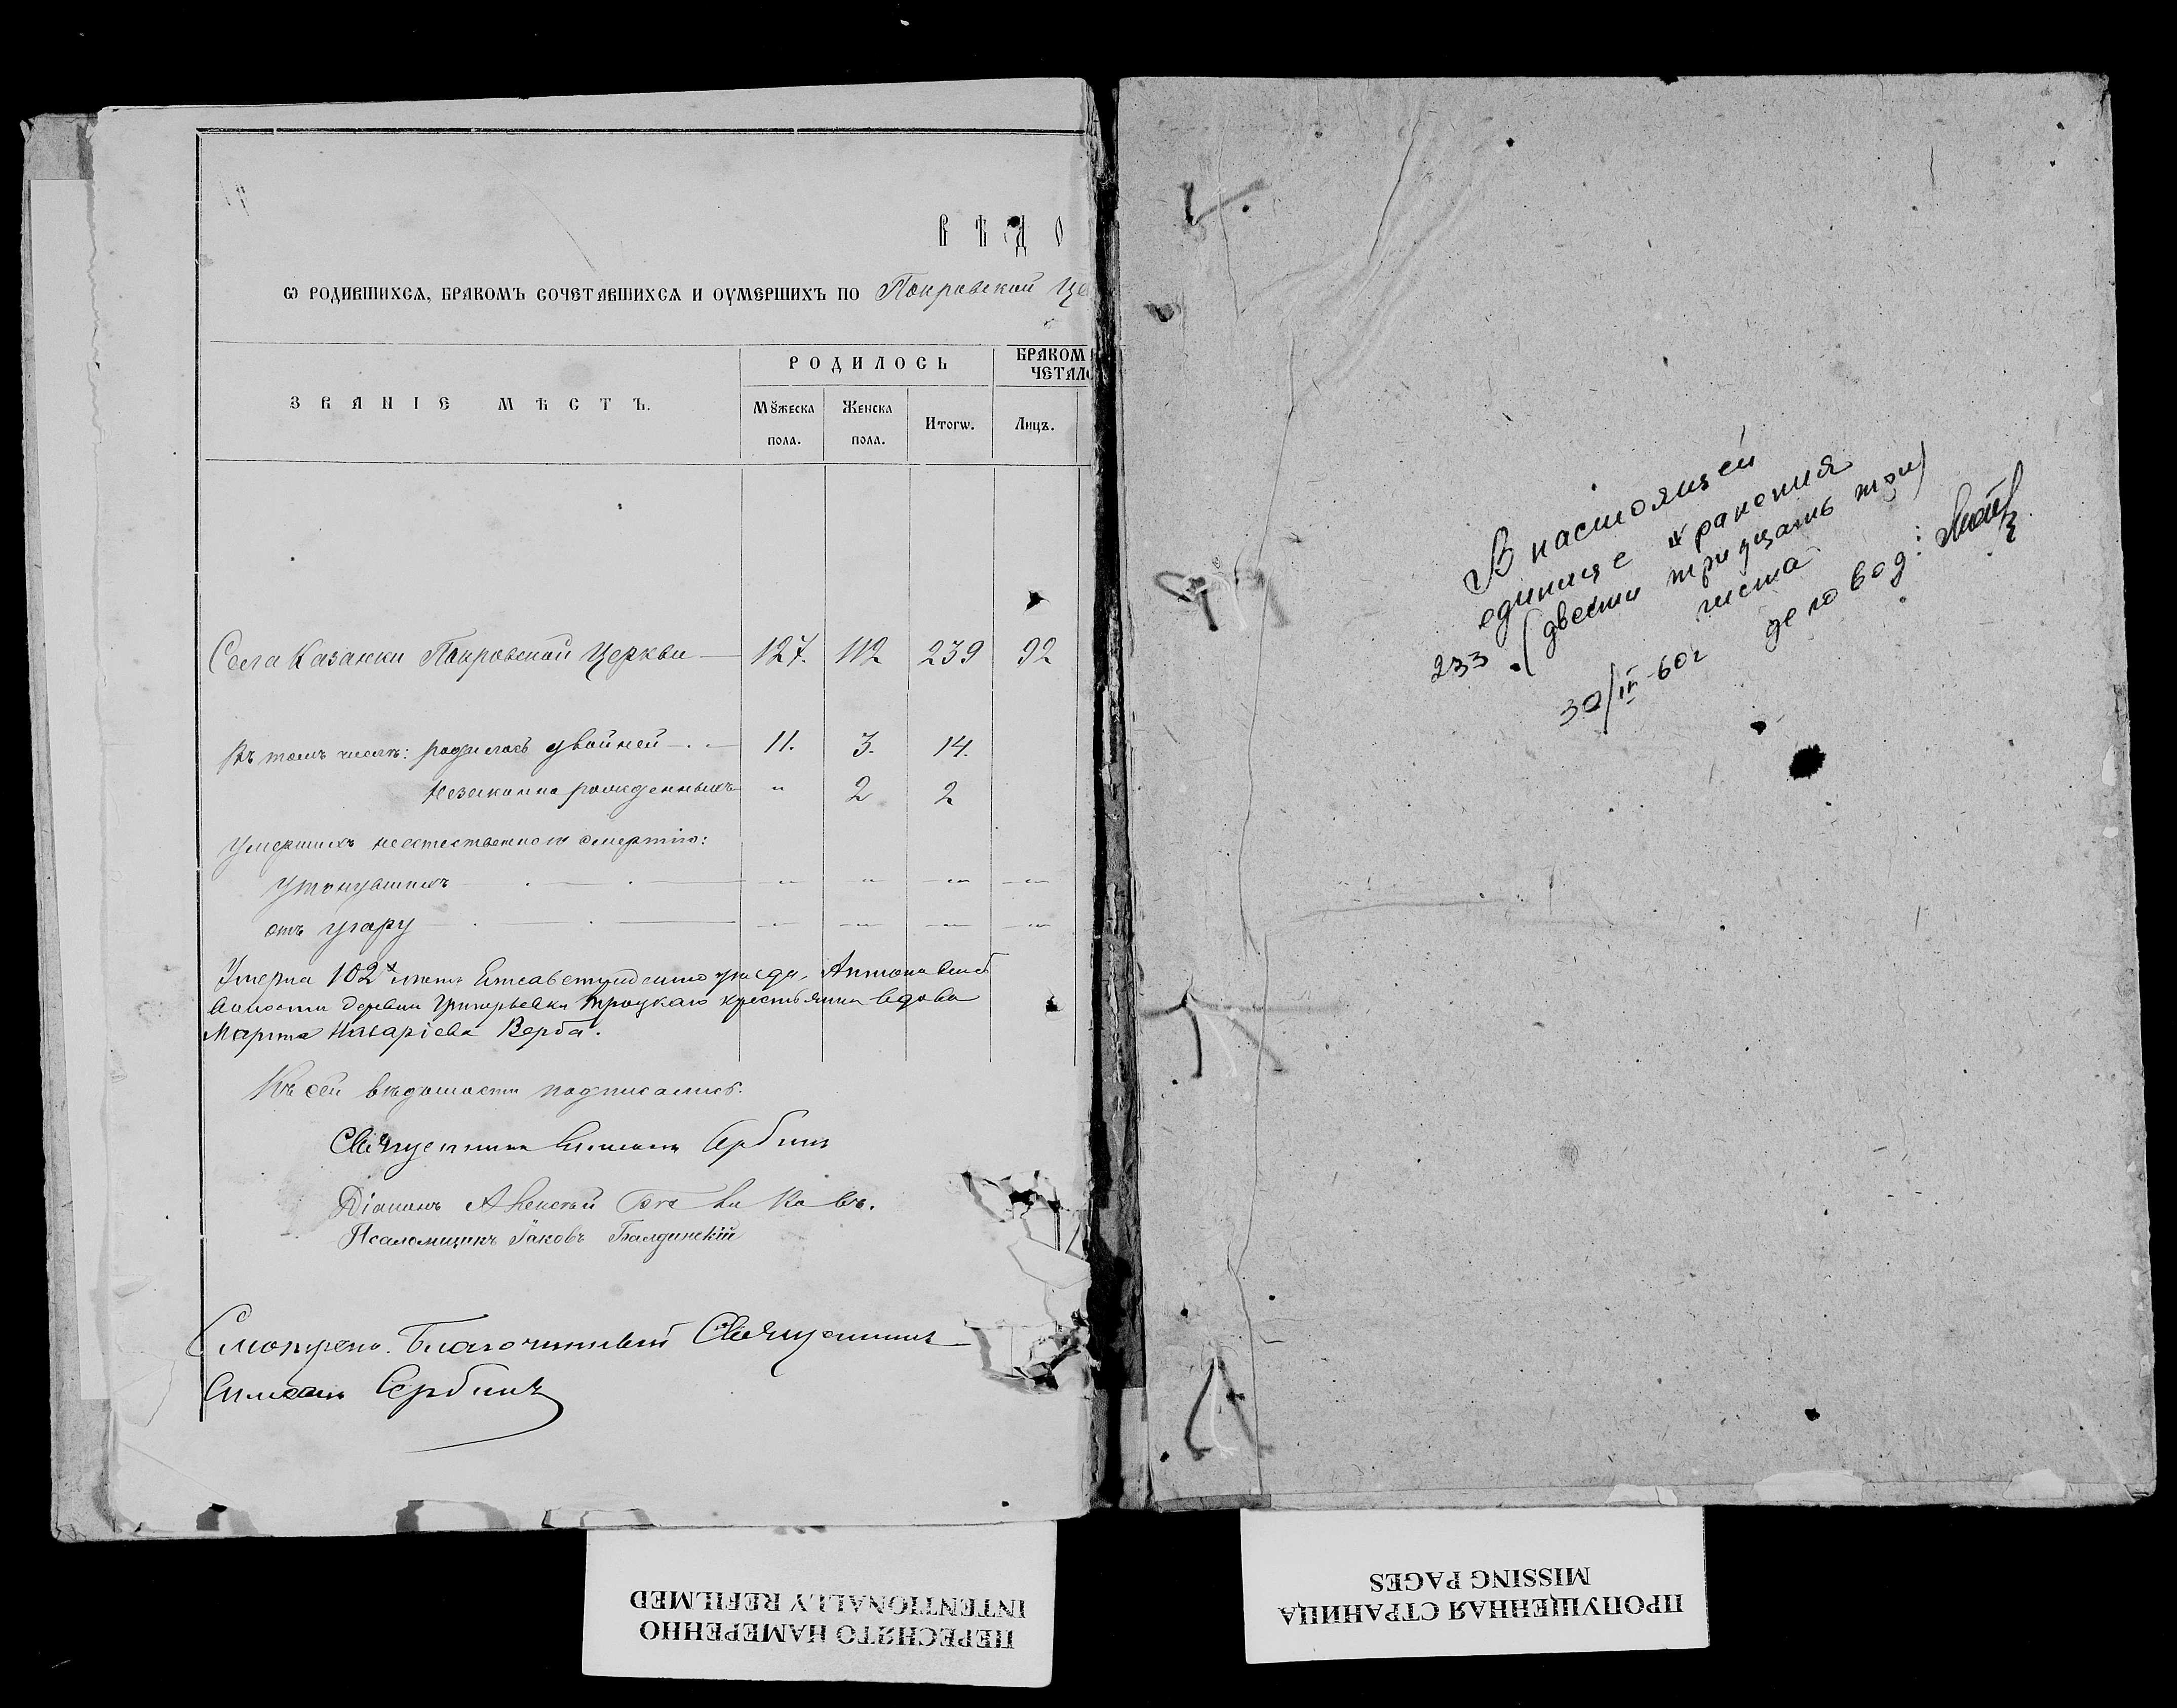 ВѢДО
Ѡ РОДИВШИХСѦ, БРАКОМЪ СОЧЕТАВШИХСѦ И ОУМЕРШИХЪ ПО Покровской Це
ЗВАНІЕ МѢСТЪ.
РОДИЛОСЬ
БРАКОМ
ЧЕТАЛО
Мꙋжеска пола.
Женска пола.
Итогѡ.
Лицъ.
Села Казанки Покровской Церкви 127. 112 239 92
Въ томъ числѣ: родилось двойней 11. 3. 14.
незаконно рожденныхъ " 2 2
Умершихъ неестественною смертію:
Утонувшихъ " " " "
отъ угару " " " "
Умерла 102х лѣтъ Елисаветградскаго уѣзда,
волости деревни Григорьевки крестьянина вдова
Марта Назаріева Верба.
Къ сей вѣдомости подписались:
Священникъ Симеонъ Сербинъ
Діаконъ Алексѣй
Псаломщикъ Іаковъ Балдинскій
Смотрено. Благочинный Священникъ
Симеонъ Сербинъ
В настоящей
единице хранения
233 (двести тридцать три)
листа
30/IV-60г деловод:
ПЕРЕСНЯТО НАМЕРЕННО
INTENTIONALLY REFILMED
ПРОПУЩЕННАЯ СТРАНИЦА
MISSING PAGES